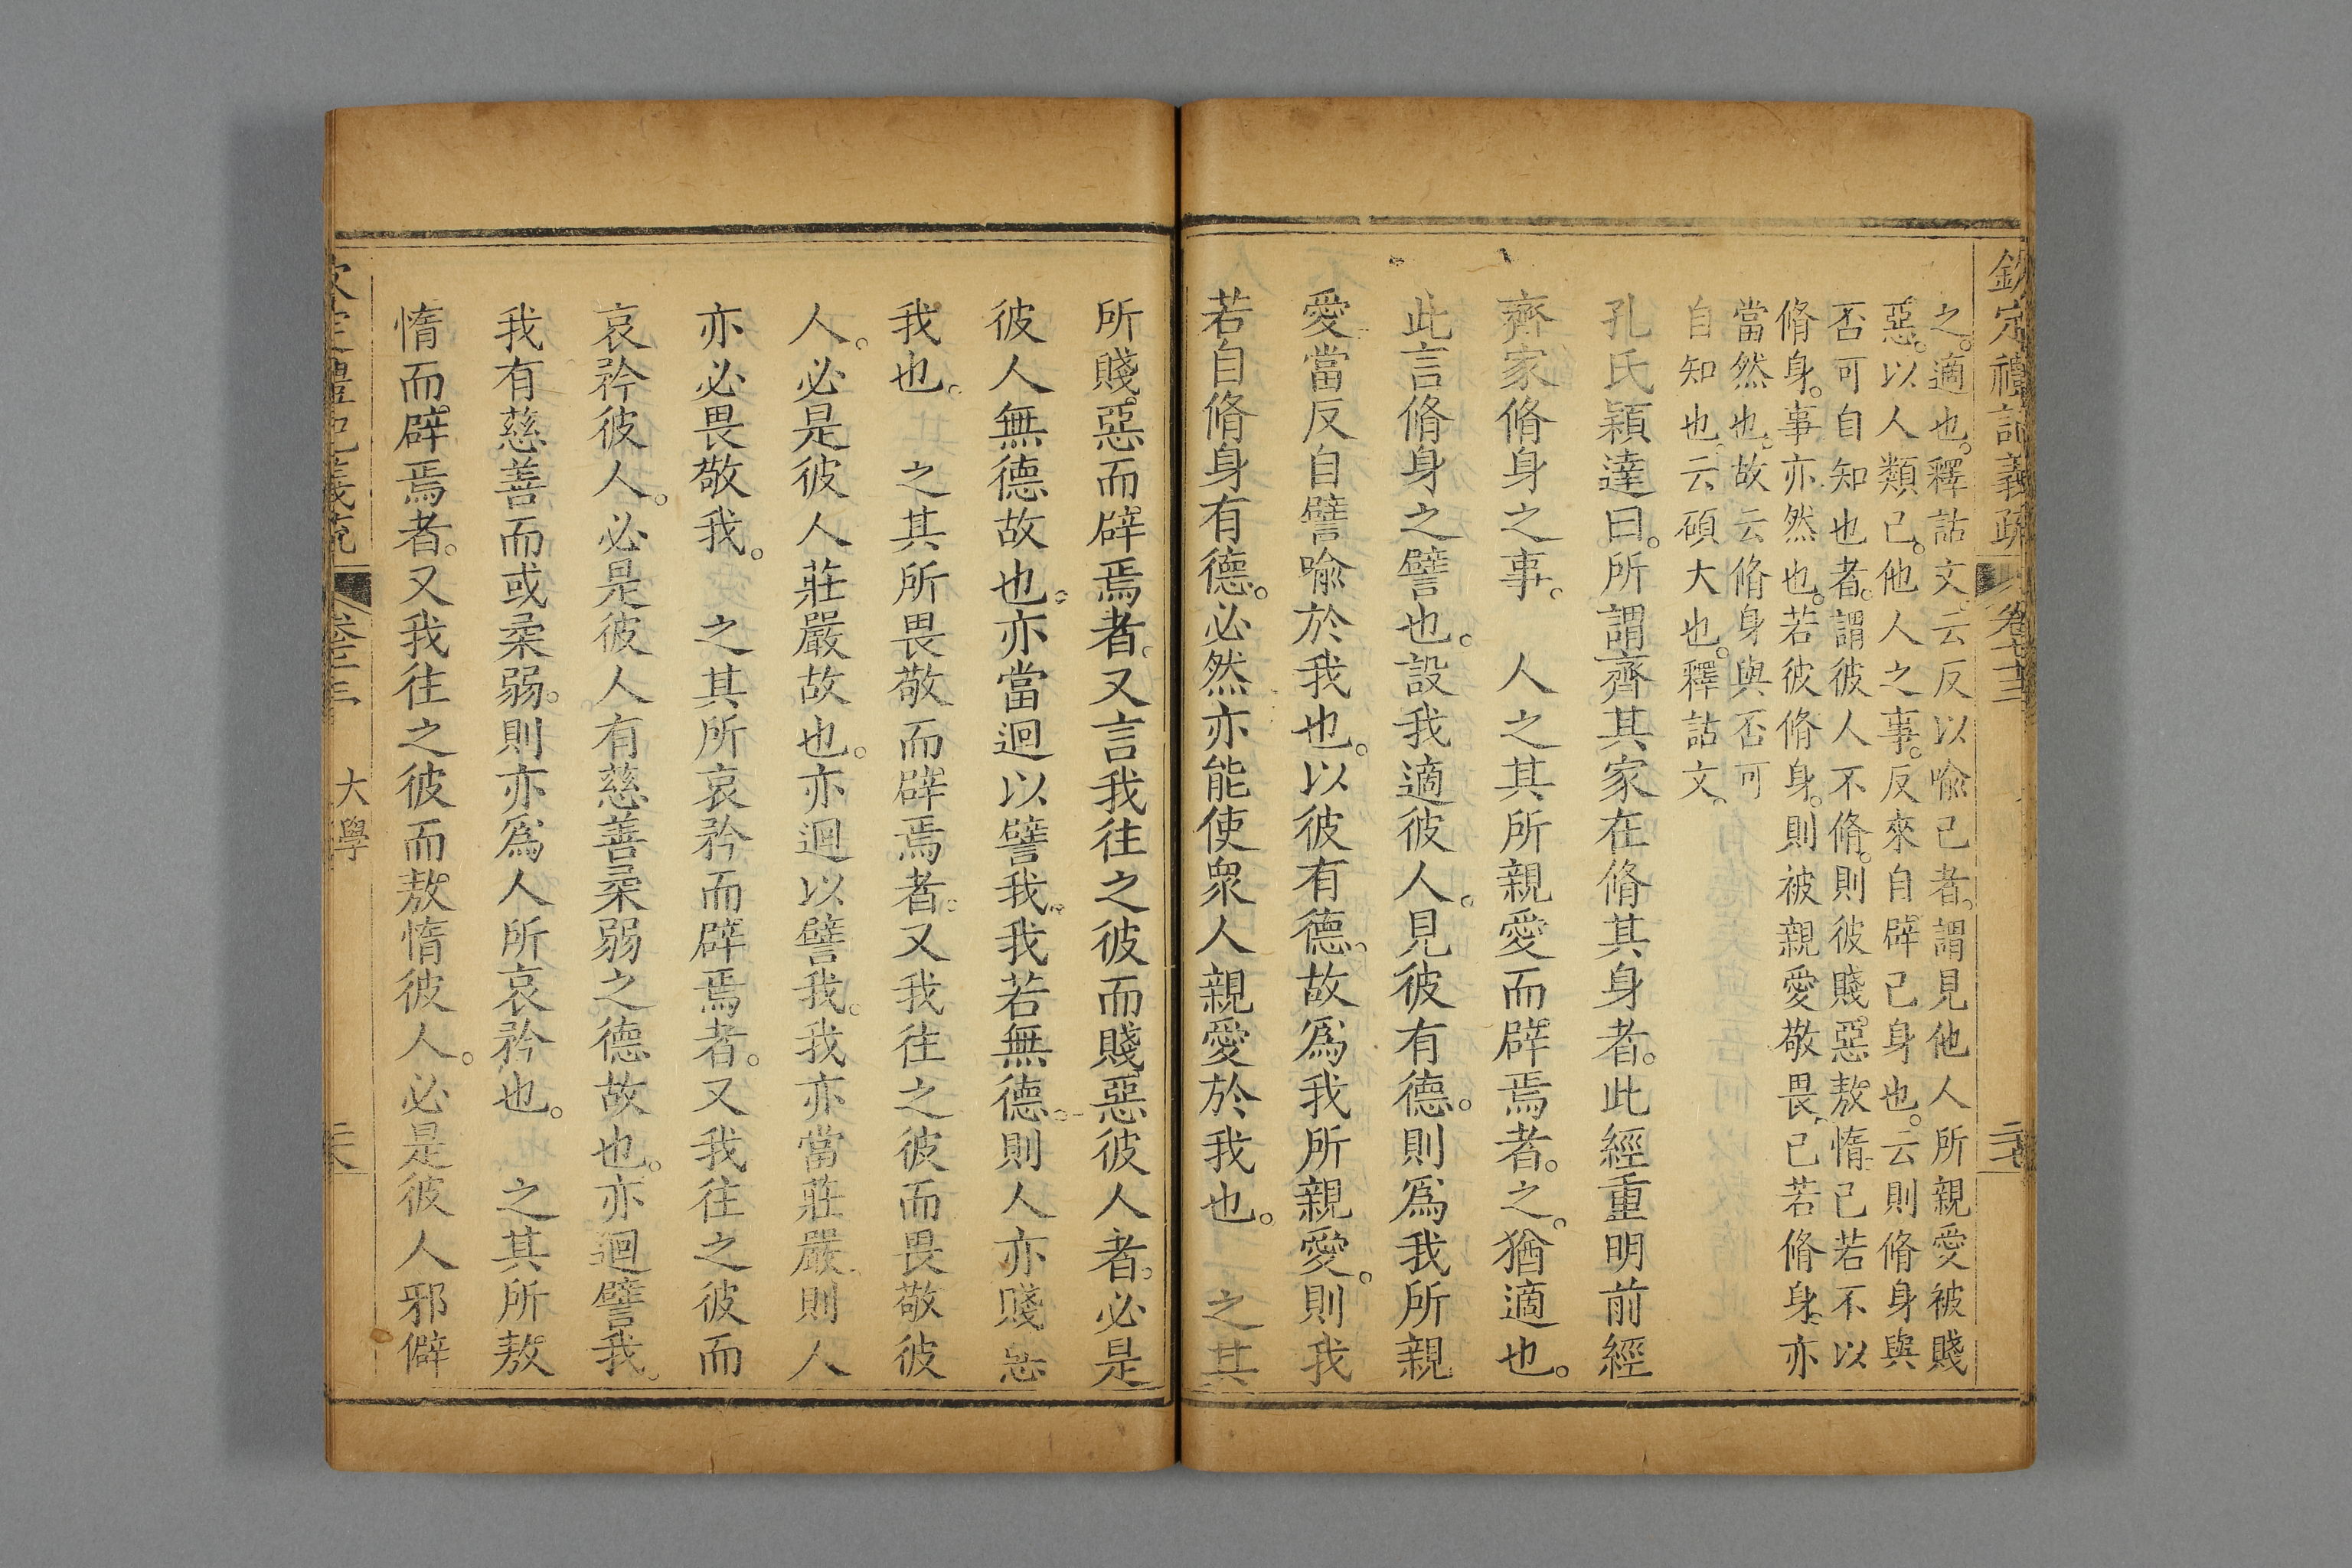 欽定禮記義疏 卷七十三 二十七
之。適也。釋詁文。云反以喻己者。謂見他人所親愛被賤
惡。以人類己。他人之事。反來自辟己身也。云則脩身與
否可自知也者。謂彼人不脩。則彼賤惡敖惰。己若不以
脩身。事亦然也。若彼脩身。則被親愛敬畏、己若脩身。亦
當然也。故云脩身與否可
自知也。云碩大也。釋詁文。
孔氏穎達曰。所謂齊其家在脩其身者。此經重明前經
齊家脩身之事。　人之其所親愛而辟焉者。之。猶適也。
此言脩身之譬也。設我適彼人。見彼有德。則爲我所親
愛當反自譬喻於我也。以彼有德。故爲我所親愛。則我
若自脩身有德。必然亦能使衆人親愛於我也。　之其
所賤惡而辟焉者。又言我往之彼而賤惡彼人者。必是
彼人無德故也。亦當迴以譬我。我若無德。則人亦賤惡
我也。　之其所畏敬而辟焉者。又我往之彼而畏敬彼
人。必是彼人莊嚴故也。亦迴以譬我。我亦當莊嚴。則人
亦必畏敬我。　之其所哀矜而辟焉者。又我往之彼而
哀矜彼人。必是彼人有慈善柔弱之德故也。亦迴譬我。
我有慈善而或柔弱。則亦爲人所哀矜也。　之其所敖
惰而辟焉者。又我往之彼而敖惰彼人。必是彼人邪僻
大學